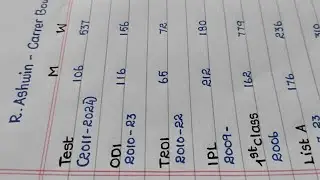 R. Ashwin - Carrer
M W
Test 106 537
(2011-2024)
ODI 116 156
2010-23
T20I 65 72
2010-22
IPL 212 180
2009-
1st Class 162 779
2006
List A 176 236
23
310